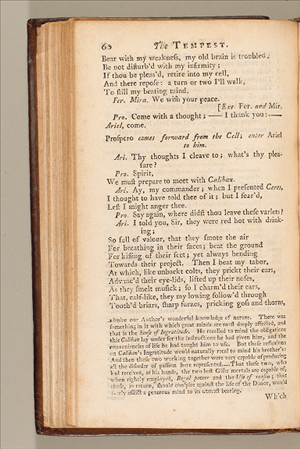 60 The TEMPEST.
Bear with my weakness, my old brain is troubled.
Be not disturb'd with my infirmity;
If thou be pleas'd, retire into my cell,
And there repose: a turn or two I'll walk,
To still my beating mind.
Fer. Mira. We wish your peace.
[Exe. Fer. and Mir.
Pro. Come with a thought; — I thank you: —
Ariel, come.
Prospero comes forward from the Cell; enter Ariel
to him.
Ari. Thy thoughts I cleave to; what's thy plea-
sure?
Pro. Spirit,
We must prepare to meet with Caliban.
Ari. Ay, my commander; when I presented Ceres,
I thought to have told thee of it; but I fear'd,
Lest I might anger thee.
Pro. Say again, where didst thou leave these varlets?
Ari. I told you, sir, they were red hot with drink-
ing;
So full of valour, that they smote the air
For breathing in their faces; beat the ground
For kissing of their feet; yet always bending
Towards their project. Then I beat my tabor,
At which, like unbackt colts, they prickt their ears,
Advanc'd their eye-lids, lifted up their noses,
As they smelt musick; so I charm'd their ears,
That, calf-like, they my lowing follow'd through
Tooth'd briars, sharp furzes, pricking goss and thorns,
admire our Author's wonderful knowledge of nature. There was
something in it with which great minds are most simply affected, and
that is the Sense of Ingratitude. He recalled to mind the obligations
this Caliban lay under for the instructions he had given him, and the
conveniencies of life he had taught him to use. But these reflexions
on Caliban's Ingratitude would naturally recal to mind his brother's:
And then these two working together were very capable of producing
all the disorder of passion here represented.—That these two, who
had received, at his hands, the two best Gifts mortals are capable of,
when rightly employed, Regal power and the Use of reason; that
these, in return, should conspire against the life of the Donor, would
surely afflict a generous mind to its utmost bearing.
Which